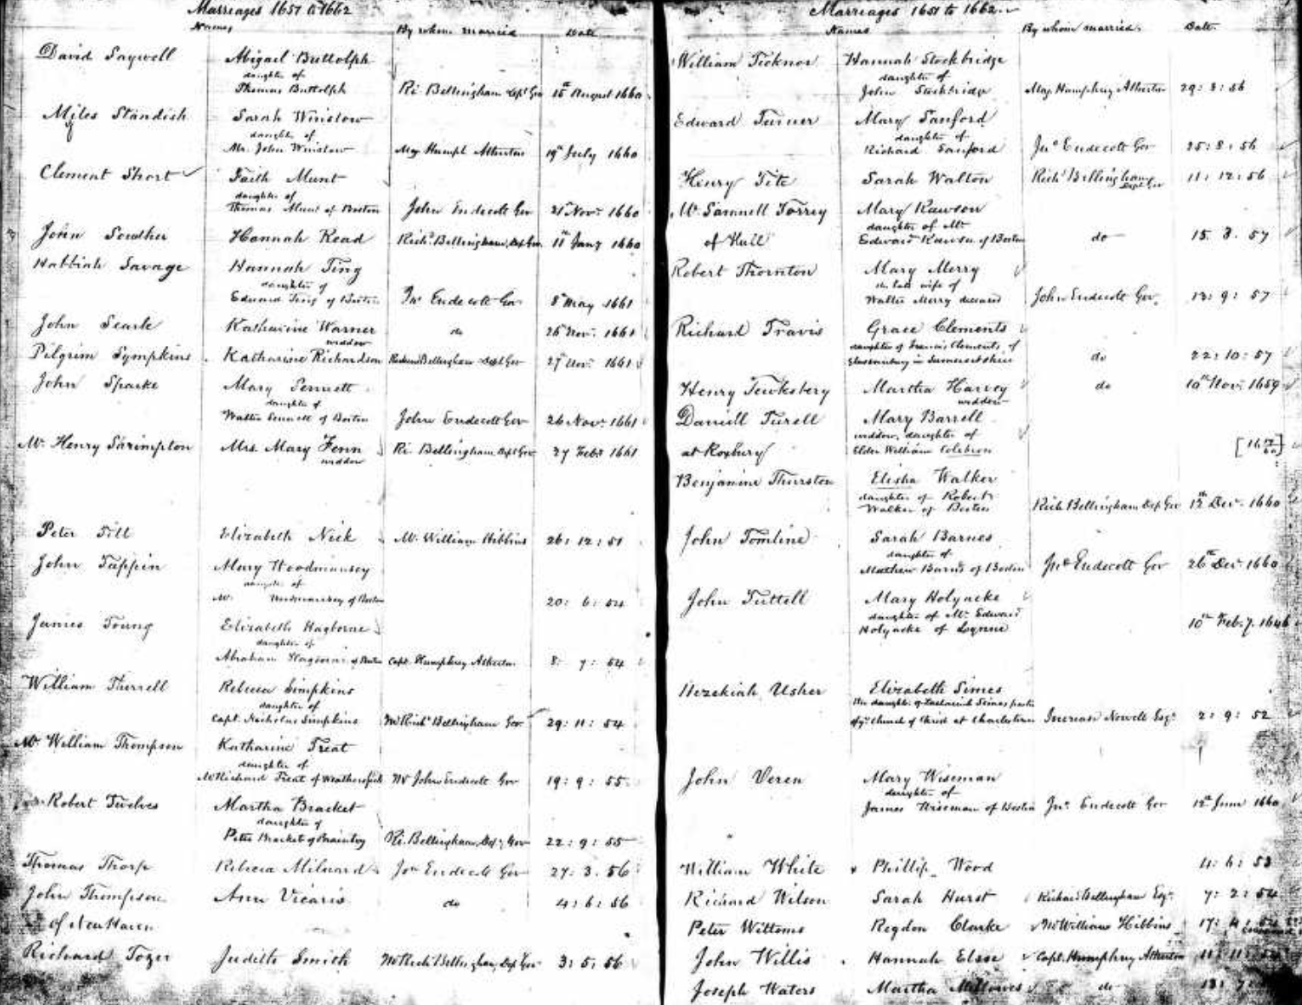 Marriages 1651 to 1662
Names By whom married Date
David Saywell Abigail Buttolph
daughter of
Thomas Buttolph Ri. Bellingham Dept Gov 15th August 1660
Miles Standish Sarah Winslow
daughter of
Mr. John Winslow Maj Humph Atherton 19th July 1660
Clement Short Faith Munt
daughter of
Thomas Munt of Boston John Endecott Gov 21st Nov. 1660
John Sowther Hannah Read Rich. Bellingham, Dep Gov 11th Jany 1660
Habbiah Savage Hannah Ting
daughter of
Edward Ting of Boston Jno Endecott Gov 8th May 1661
John Searle Katharine Warner do 26th Nov. 1661
widdow
Pilgrim Sympkins Katharine Richardson Richard Bellingham Dept Gov 27th Nov. 1661
John Sparke Mary Sennett
daughter of
Walter Sennett of Boston John Endecott Gov 26 Nov. 1661
Mr. Henry Shrimpton Mrs. Mary Fenn Ri. Bellingham Dept Gov 27 Feb. 1661
widdow
Peter Till Elizabeth Nick Mr. William Hibbins 26: 12: 51
John Tappin Mary Woodmansey
daughter of
Mr. Woodmansey of Boston 20: 6: 54
James Toung Elizabeth Hagborne
daughter of
Abraham Hagborne of Boston Capt. Humphrey Atherton 8: 7: 54
William Therrell Rebecca Simpkins
daughter of
Capt. Nicholas Simpkins Mr Rich. Bellingham Gov 29: 11: 54
Mr. William Thompson Katharine Treat
daughter of
Mr Richard Treat of Weathersfield Mr John Endecott Gov 19: 9: 55
Robert Twelves Martha Bracket
daughter of
Peter Bracket of Braintry Ri. Bellingham, Dep. Gov 22: 9: 55
Thomas Thorp Rebecca Milnard Jon Endecott Gov 27: 3. 56
John Thompson Ann Vicaris do 4: 6: 56
of New Haven
Richard Tozer Judith Smith Mr Rich. Bellingham, Dep Gov 3: 5: 56
Marriages 1651 to 1662
Names By whom married. Date.
William Ticknor Hannah Stockbridge
daughter of
John Stockbridge Maj. Humphry Atherton 29: 8: 56
Edward Turner Mary Sanford
daughter of
Richard Sanford Jno Endecott Gov 25: 8: 56
Henry Tite Sarah Walton Rich. Bellingham 11: 12: 56
Dept Gov
Mr. Samuell Torrey Mary Rawson
daughter of Mr
of Hull Edward Rawson of Boston do 15. 3. 57
Robert Thornton Mary Merry
the late wife of
Walter Merry deceased John Endecott Gov. 13: 9: 57
Richard Travis Grace Clements
daughter of Francis Clements, of
Glassenbury in Somersetshire do 22: 10: 57
Henry Tewksbery Martha Harvey do 10th Nov. 1659
widdow
Daniell Turell Mary Barrell
widdow, daughter of
at Roxbury Elder William Colebron
Benjamine Thurston Elisha Walker
daughter of Robert
Walker of Boston Rich Bellingham Dep Gov 12th Dec. 1660
John Tomline Sarah Barnes
daughter of
Matthew Barnes of Boston Jno Endecott Gov 26th Dec. 1660
John Tuttell Mary Holyocke
daughter of Mr. Edward
Holyocke of Lynne 10th Feb.y. 1646
Hezekiah Usher Elizabeth Simes
the daughter of Zachariah Simes pastor
of ye. Church of Christ at Charlestown Increase Nowell Esqr 2: 9: 52
John Veren Mary Wiseman
daughter of
James Wiseman of Boston Jno. Endecott Gov 12th June 1660
William White Phillip Wood 4: 6: 53
Richard Wilson Sarah Hurst Richard Bellingham Esqr. 7: 2: 54
Peter Wittoms Regdon Clarke Mr William Hibbins 17: 4:
John Willis Hannah Elsse Capt. Humphry Atherton 11: 11:
Joseph Waters Martha Mellowes do 13: 7: